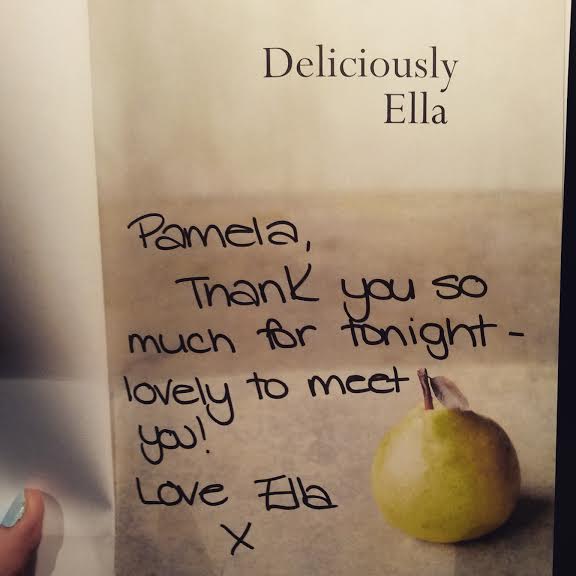 Deliciously
Ella
Pamela,
Thank you so
much for tonight -
lovely to meet
you!
Love Ella
X